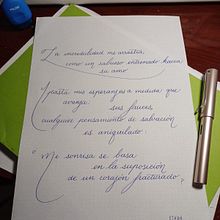 La morbilidad me arrastra,
como un sabueso entrenado hacia
su amo.
pasta mis esperanzas a medida que
avanza sus fauces
cualquier pensamiento de salvación
es aniquilado.
Mi sonrisa se basa
en la suposición
de un corazón fracturado.